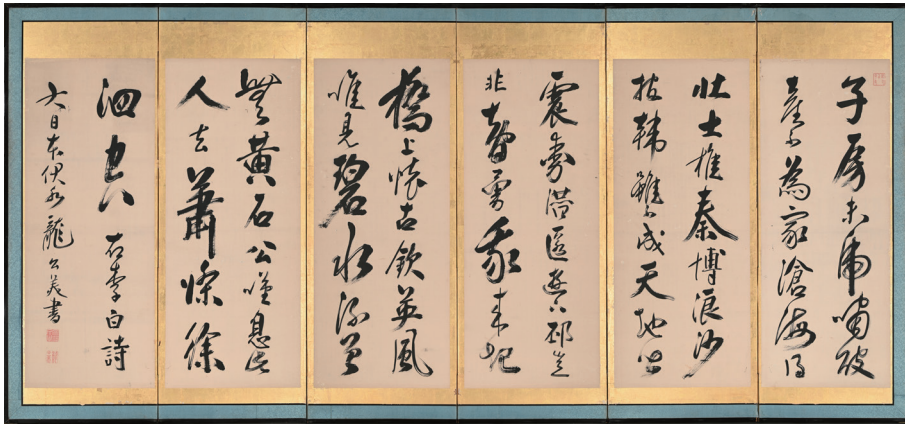 子房未虎嘯破
產不為家滄海得
壯士椎秦博浪沙
報韓雖不成天地皆
震動潛匿遊下邳豈
非智勇我來圯
橋上懷古欽英風
惟見碧水流曾
無黃石公嘆息此
人去蕭條徐
泗空 右李白詩
大日本伏水龍公美書